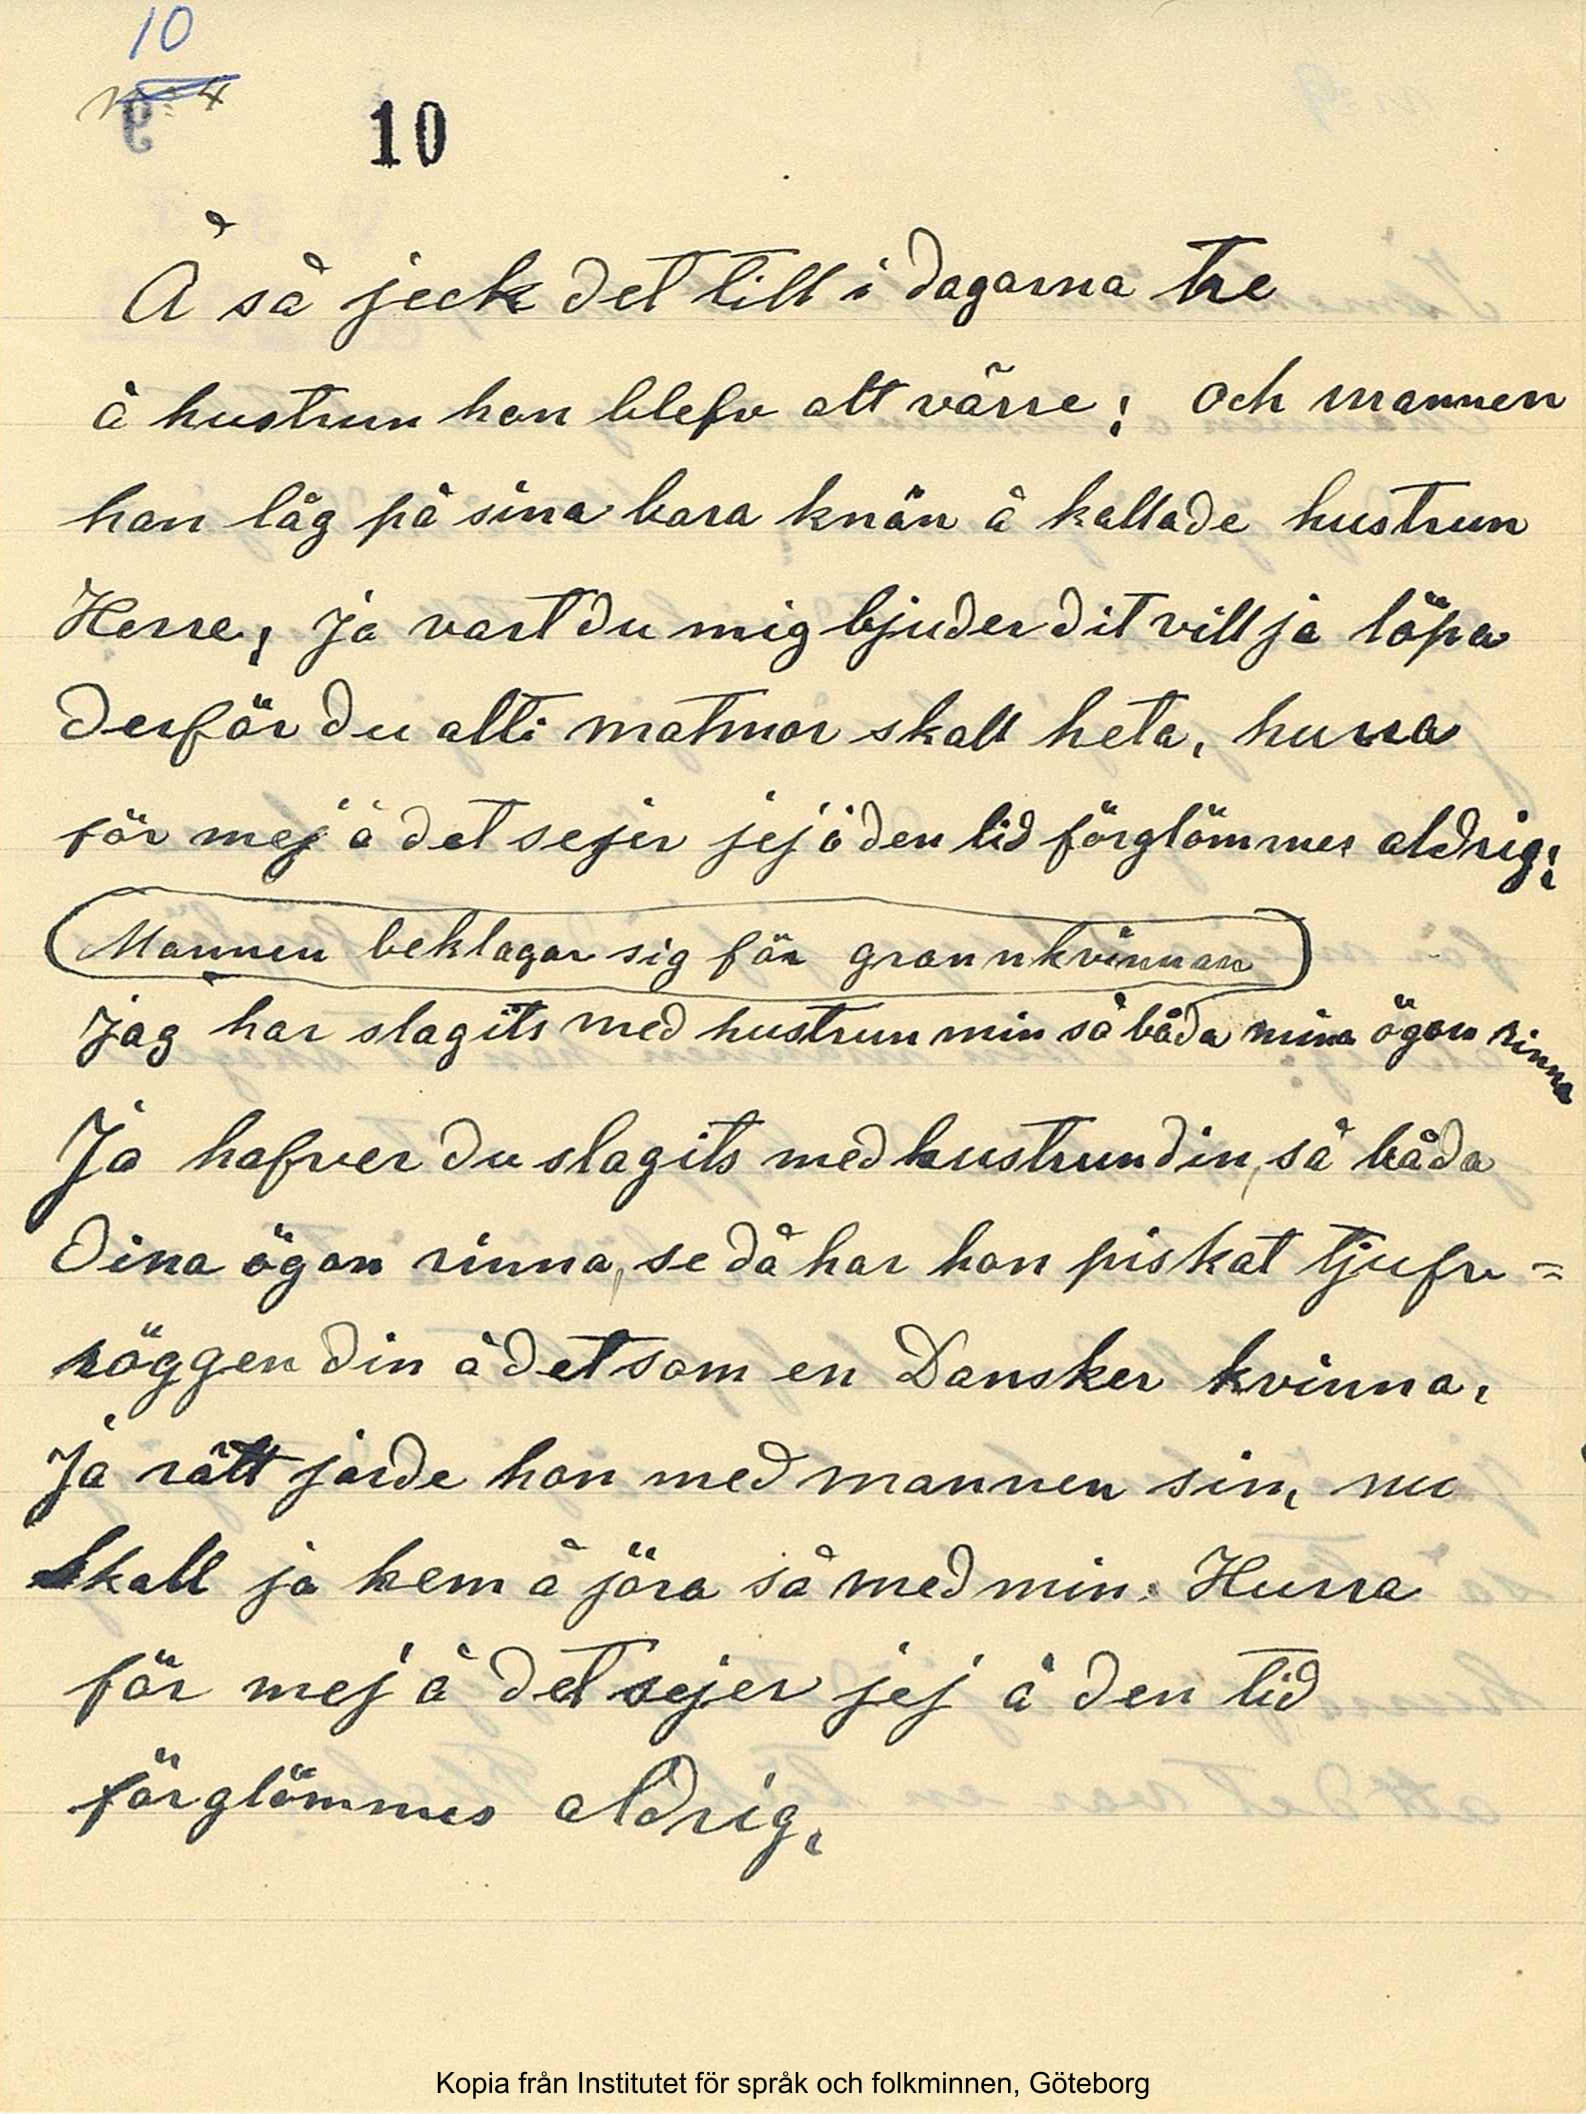 10
N:4
9 10
Å så jeck det till i dagarna tre
å hustrun hon blefv allt värre; och mannen
han låg på sina bara knän å kallade hustrun
Herre; Ja vart du mig bjuder dit vill ja löpa
derför du allti matmor skall heta, hurra
för mej å det sejer jej å den tid förglömmes aldrig;
(Mannen beklagar sig för grannkvinnan)
Jag har slagits med hustrun min så båda mina ögon rinna
Ja hafver du slagits med hustrun din, så båda
Dina ögon rinna, se då har hon piskat tjufv=
röggen din å det som en Dansker kvinna,
Ja rätt jorde hon med mannen sin, nu
skall ja hem å jöra så med min. Hurra
för mej å det sejer jej å den tid
förglömmes aldrig,
Kopia från Institutet för språk och folkminnen, Göteborg